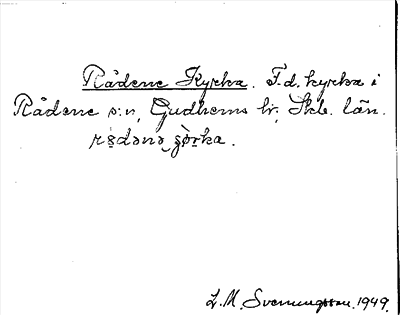 Rådene Kyrka. F.d. kyrka i
Rådene s:n, Gudhems hd, Skb. län.
L. M. Svenungsson. 1949.